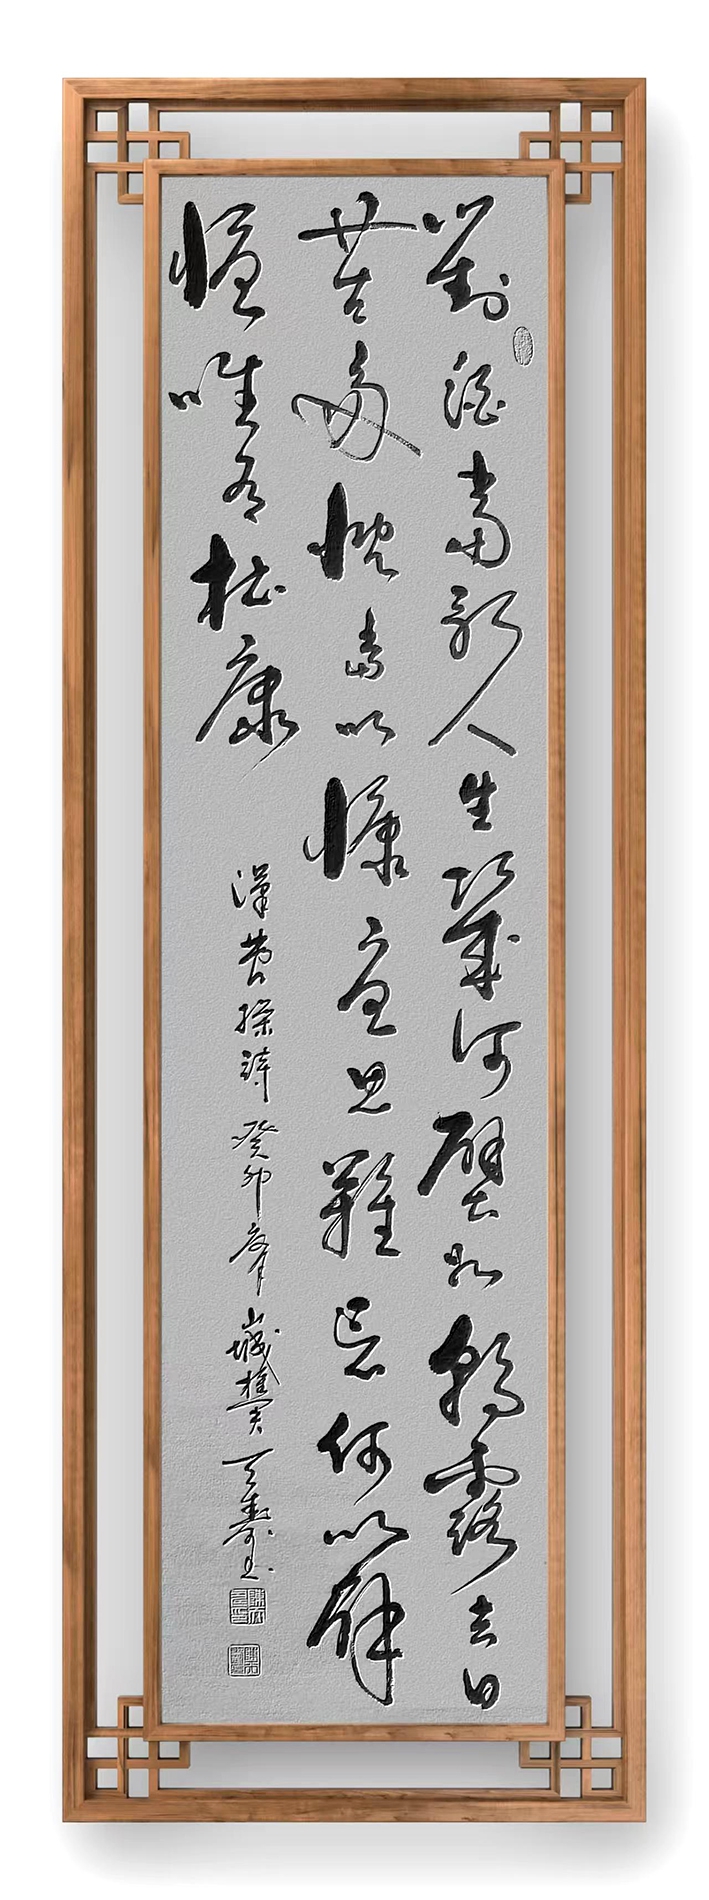 對酒當歌人生幾何譬如朝露去日
苦多慨當以慷憂思難忘何以解
懮唯有杜康
漢曹操詩癸卯夏月山城天壽書